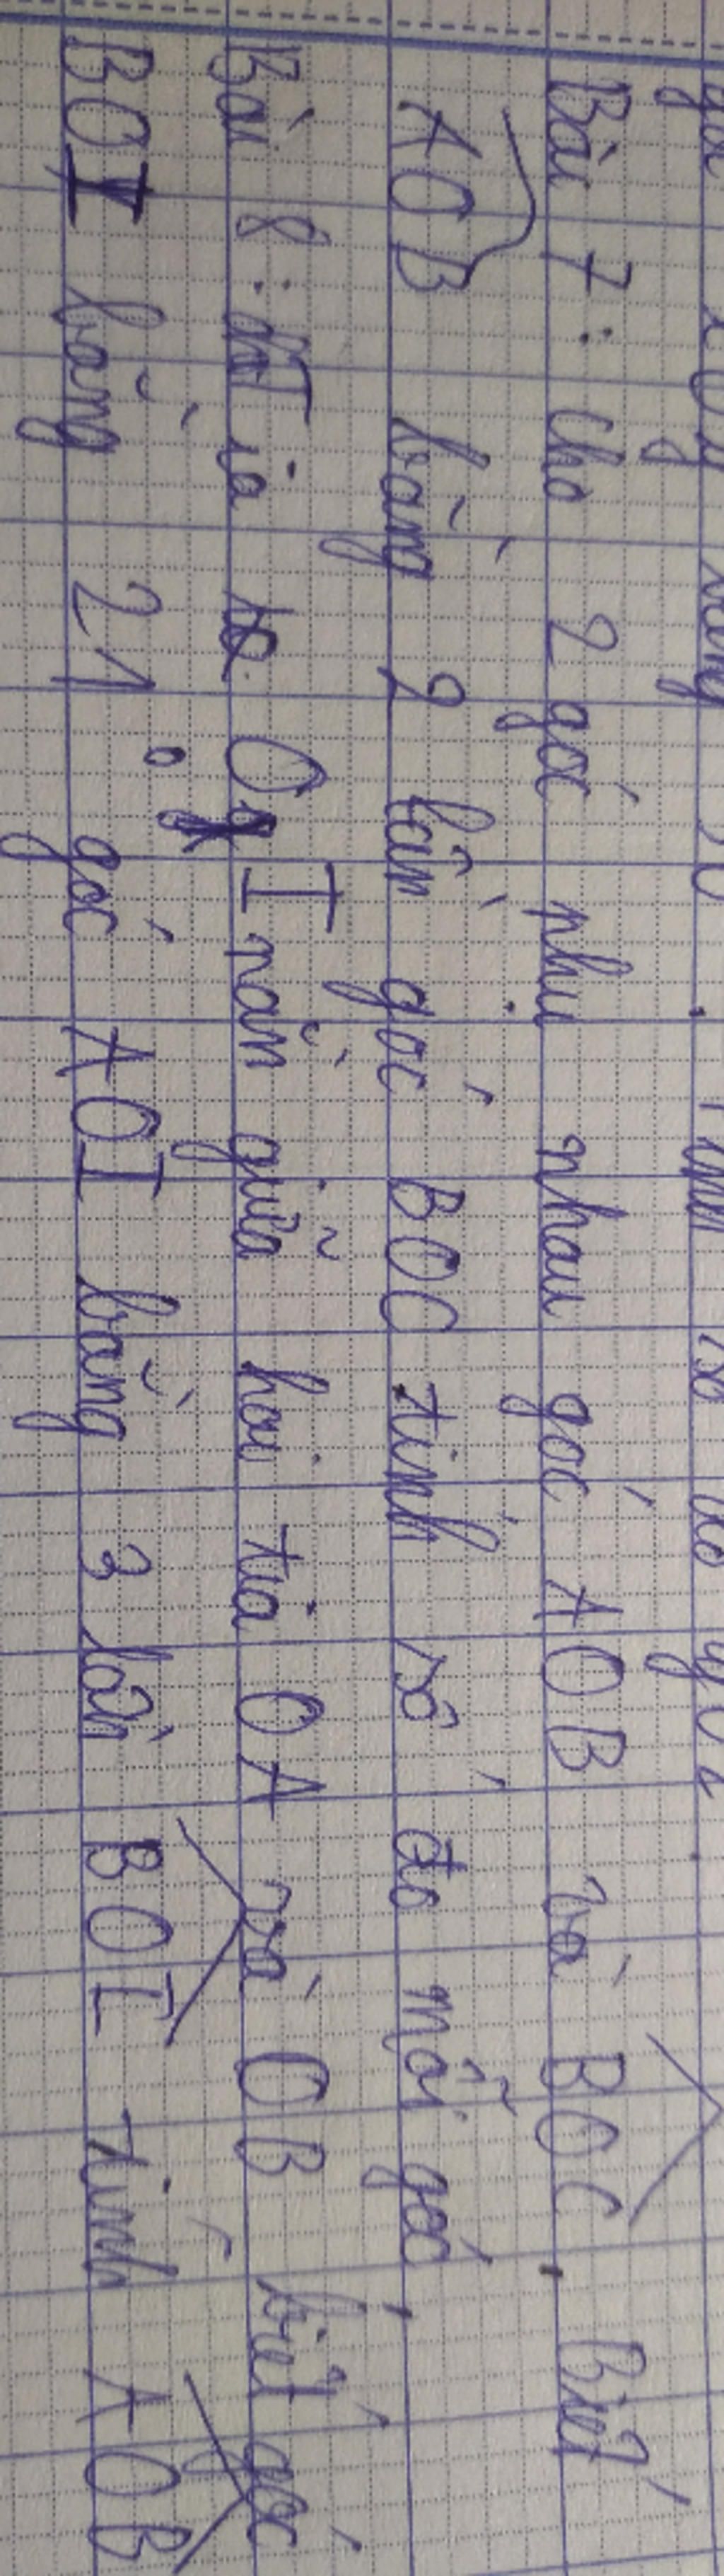 góc
Bài 7: cho 2 góc phụ nhau góc AOB và BOC. Biết
AOB bằng 2 lần góc BOC tính số đo mỗi góc
Bài 8: tia OI nằm giữa hai tia OA và OB biết góc
BOI bằng 21° góc AOI bằng 3 lần BOI tính AOB